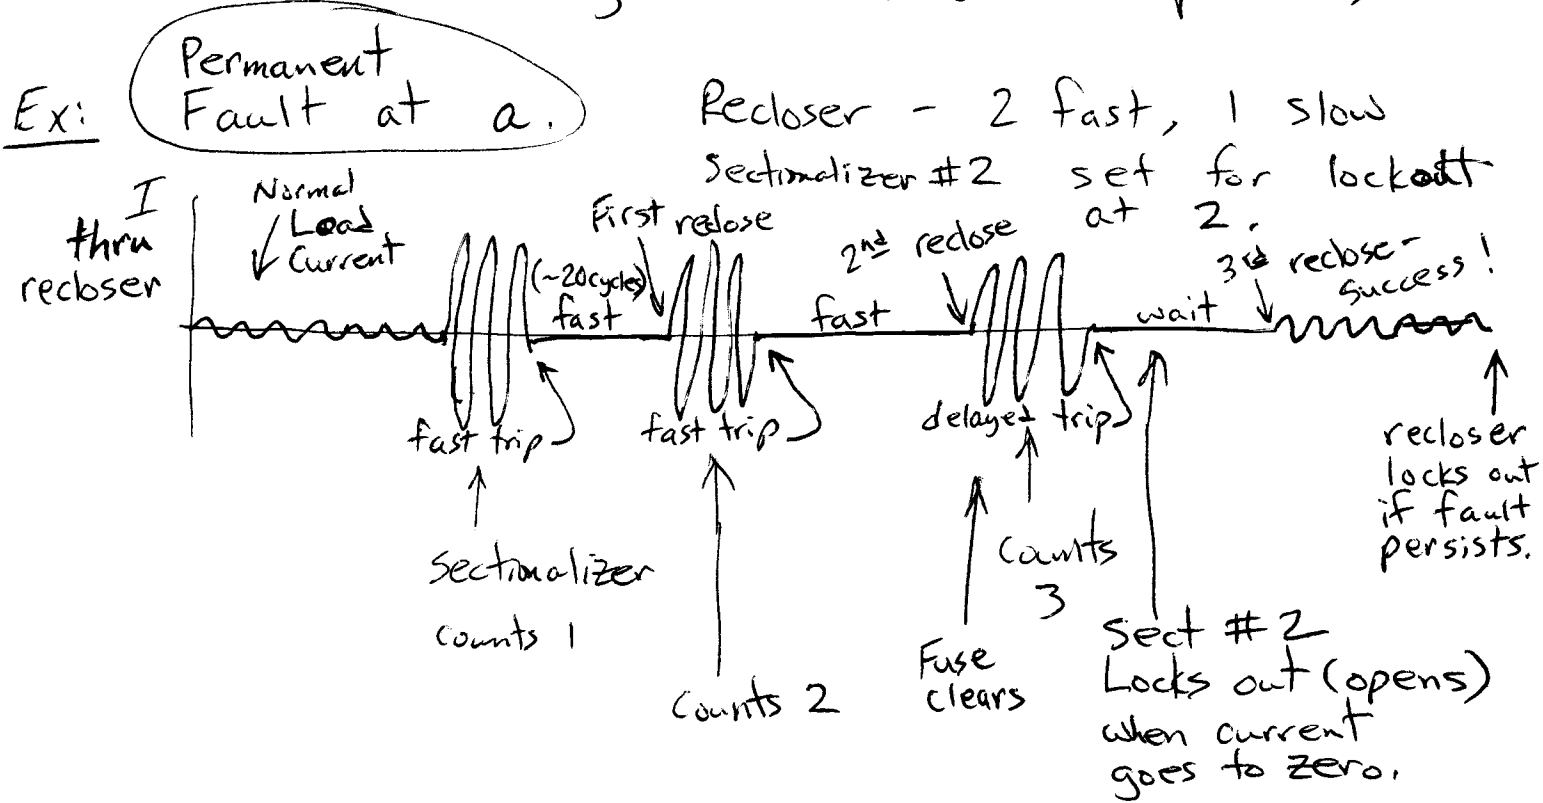 Ex:
Permanent
Fault at a.
Recloser - 2 fast, 1 slow
Sectionalizer #2 set for lockout
at 2.
I
thru
recloser
Normal
Load
Current
First reclose
2nd reclose
3rd reclose -
success!
(~20cycles)
fast
fast
wait
fast trip
fast trip
delayed trip
recloser
locks out
if fault
persists.
Sectionalizer
counts 1
Counts 2
Fuse
clears
Counts
3
Sect #2
Locks out (opens)
when current
goes to zero.